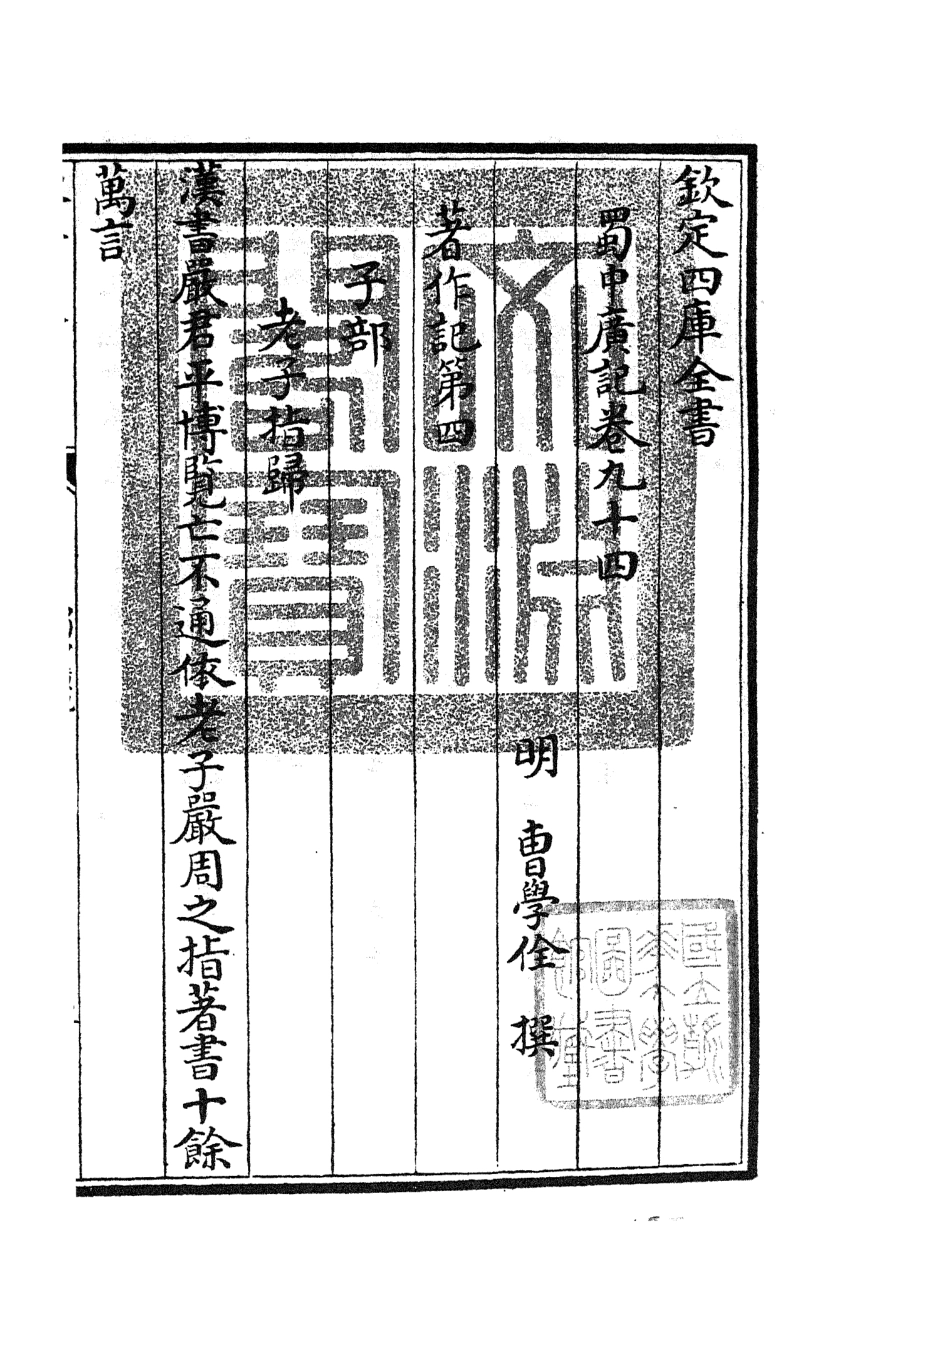 欽定四庫全書
蜀中廣記卷九十四
明 曹學佺 撰
著作記第四
子部
老子指歸
漢書嚴君平博覽亡不通依老子嚴周之指著書十餘
萬言
文淵閣寶